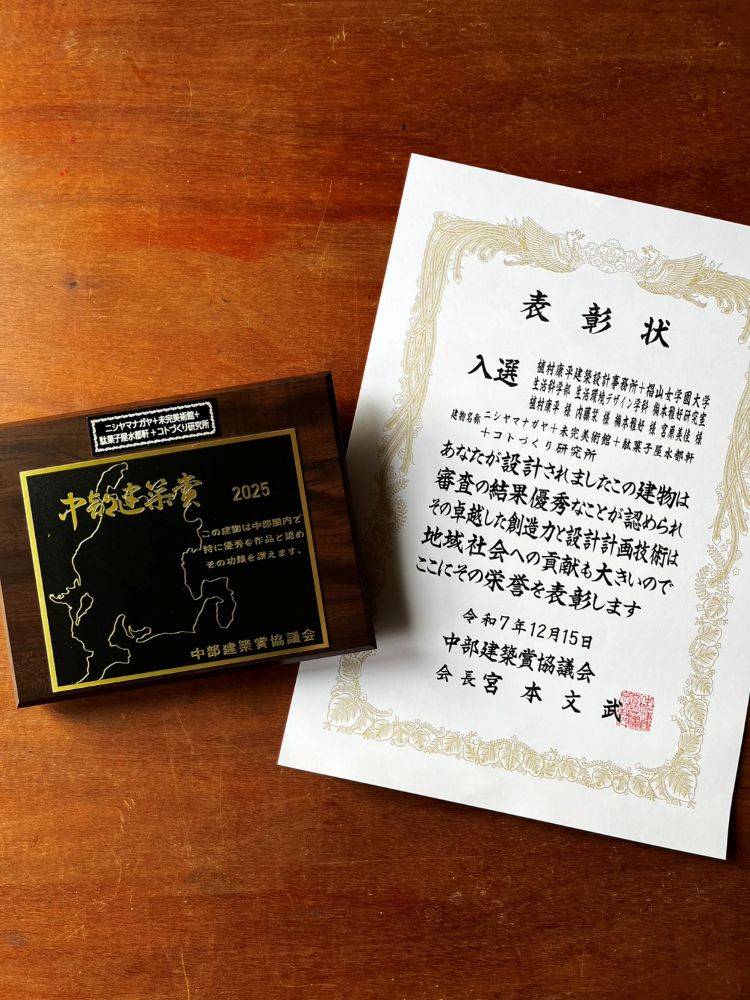 ニシヤマナガヤ+未完美術館+
駄菓子屋水都軒+コトづくり研究所
中部建築賞 2025
この建物は中部圏内で
特に優秀な作品と認め
その功績を讃えます。
中部建築賞協議会
表彰状
入選
植村康平建築設計事務所+椙山女学園大学
生活科学部 生活環境デザイン学科 橋本雅好研究室
植村康平 様 内藤菜 様 橋本雅好 様 宮原美佳 様
建物名称 ニシヤマナガヤ+未完美術館+駄菓子屋水都軒
+コトづくり研究所
あなたが設計されましたこの建物は
審査の結果優秀なことが認められ
その卓越した創造力と設計計画技術は
地域社会への貢献も大きいので
ここにその栄誉を表彰します
令和7年12月15日
中部建築賞協議会
会長 宮本文武